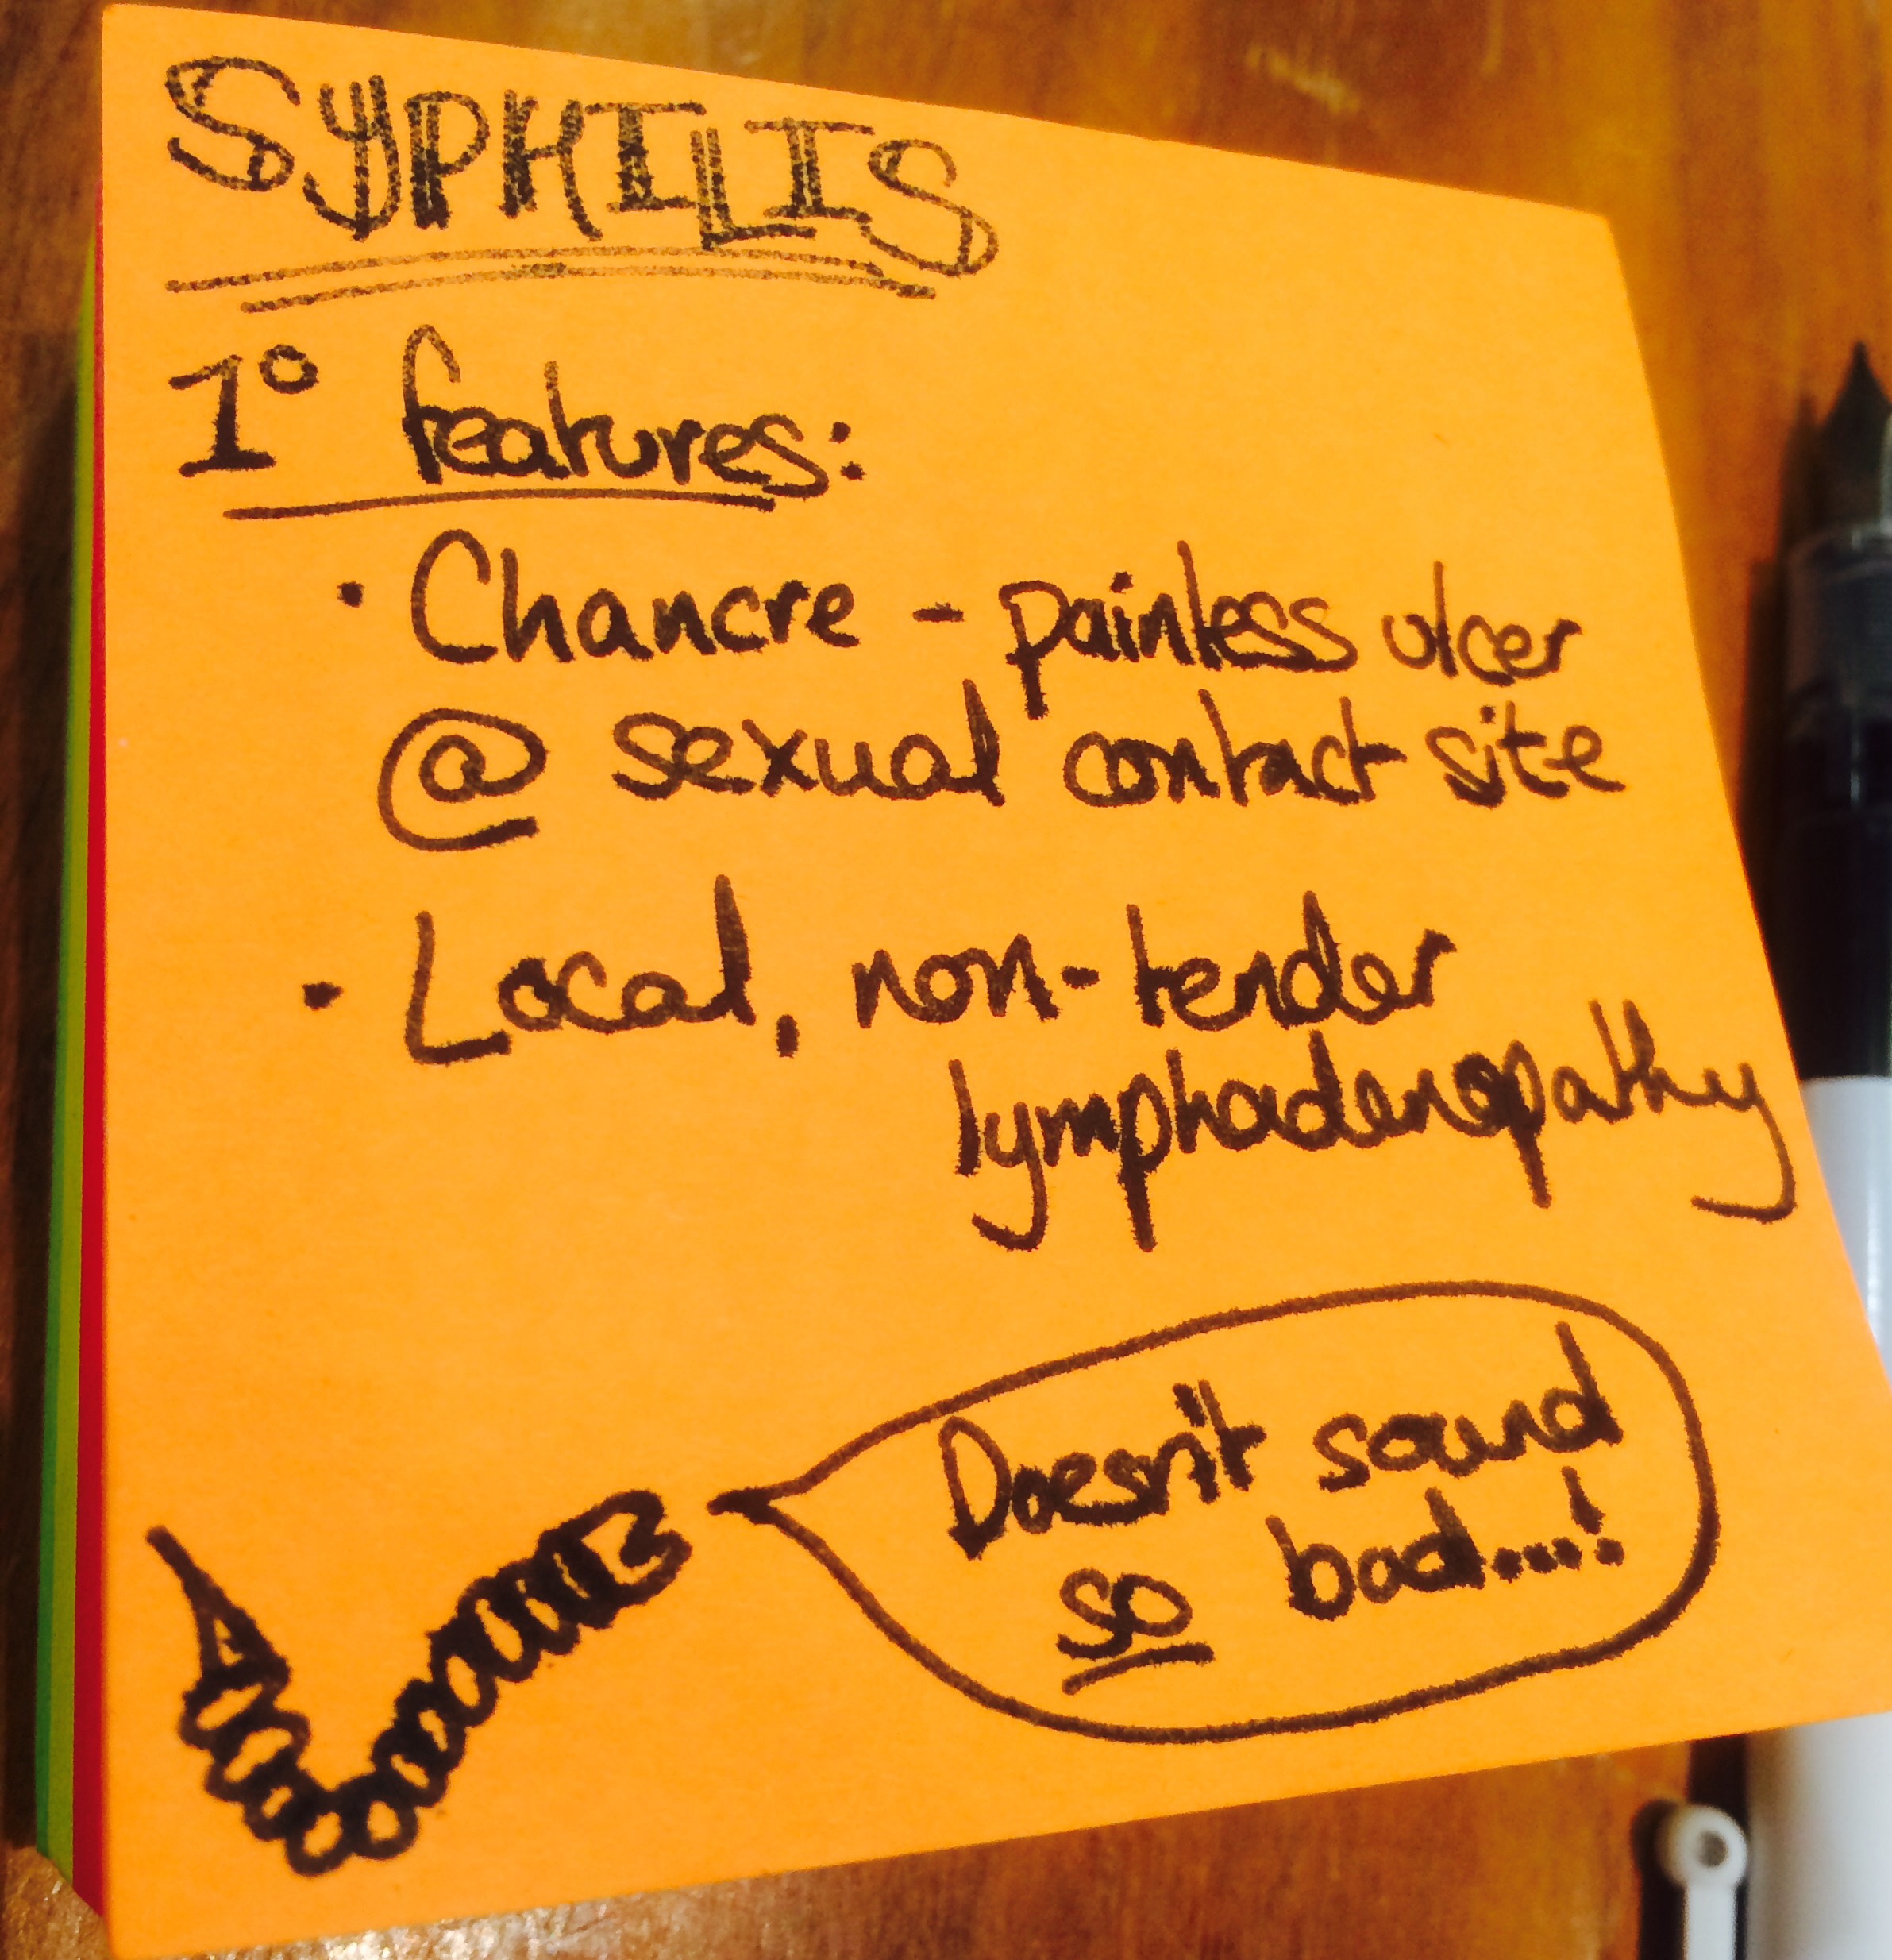 SYPHILIS
1° features:
· Chancre - painless ulcer
@ sexual contact site
· Local, non-tender
lymphadenopathy
Doesn't sound
so bad....!